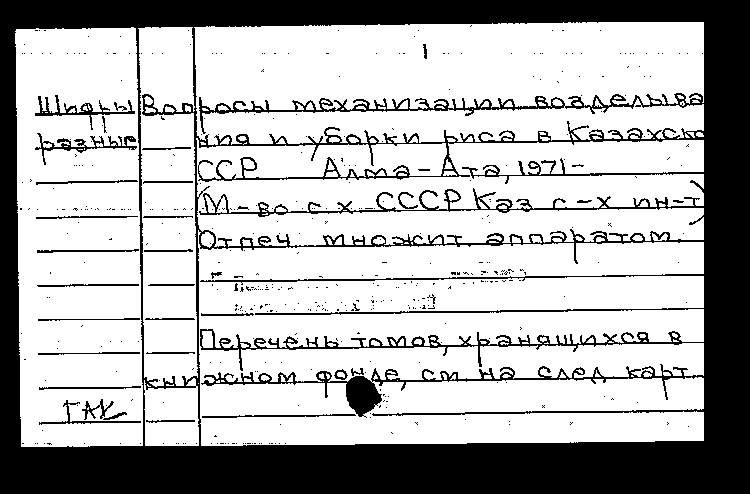 1
Шифры Вопросы механизации возделыва
разные ния и уборки риса в Казахско
ССР Алма-Ата, 1971-
(М-во с х СССР Каз с-х ин-т)
Отпеч множит. аппаратом.
Перечень томов, хранящихся в
книжном фонде, см на след карт
ГАК